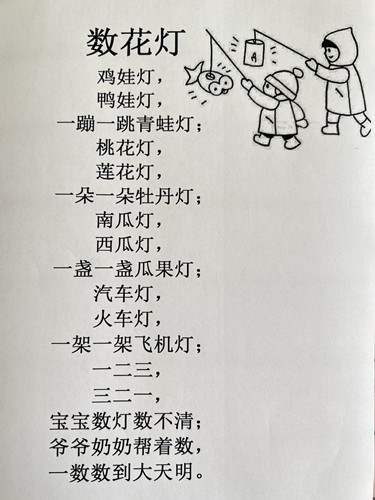 数花灯
鸡娃灯，
鸭娃灯，
一蹦一跳青蛙灯；
桃花灯，
莲花灯，
一朵一朵牡丹灯；
南瓜灯，
西瓜灯，
一盏一盏瓜果灯；
汽车灯，
火车灯，
一架一架飞机灯；
一二三，
三二一，
宝宝数灯数不清；
爷爷奶奶帮着数，
一数数到大天明。